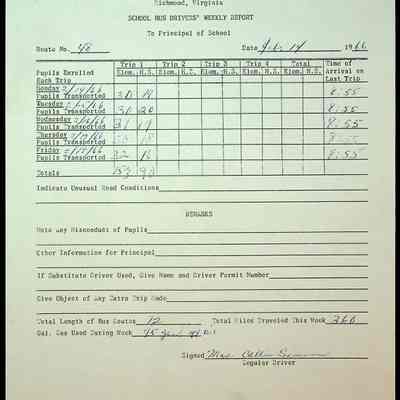 Richmond, Virginia
SCHOOL BUS DRIVERS' WEEKLY REPORT
To Principal of School
Route No. 48 Date Feb. 14 1966
Trip 1 Trip 2 Trip 3 Trip 4 Time of
Pupils Enrolled Elem. H.S. Elem. H.S. Elem. H.S. Elem. H.S. Arrival on
Each Trip Last Trip
Monday 2/14/66
Pupils Transported 30 18 8:55
Tuesday 2/15/66
Pupils Transported 31 20 8:55
Wednesday 2/16/66
Pupils Transported 8:55
Thursday 2/17/66
Pupils Transported 18 8:55
Friday 2/18/66
Pupils Transported 32 8:55
Totals 153
Indicate Unusual Road Conditions
REMARKS
Note Any Misconduct of Pupils
Other Information for Principal
If Substitute Driver Used, Give Name and Driver Permit Number
Give Object of Any Extra Trip Made
Total Length of Bus Routes 12 Total Miles Traveled This Week 360
Gal. Gas Used During Week 45
Signed Mrs.
Regular Driver